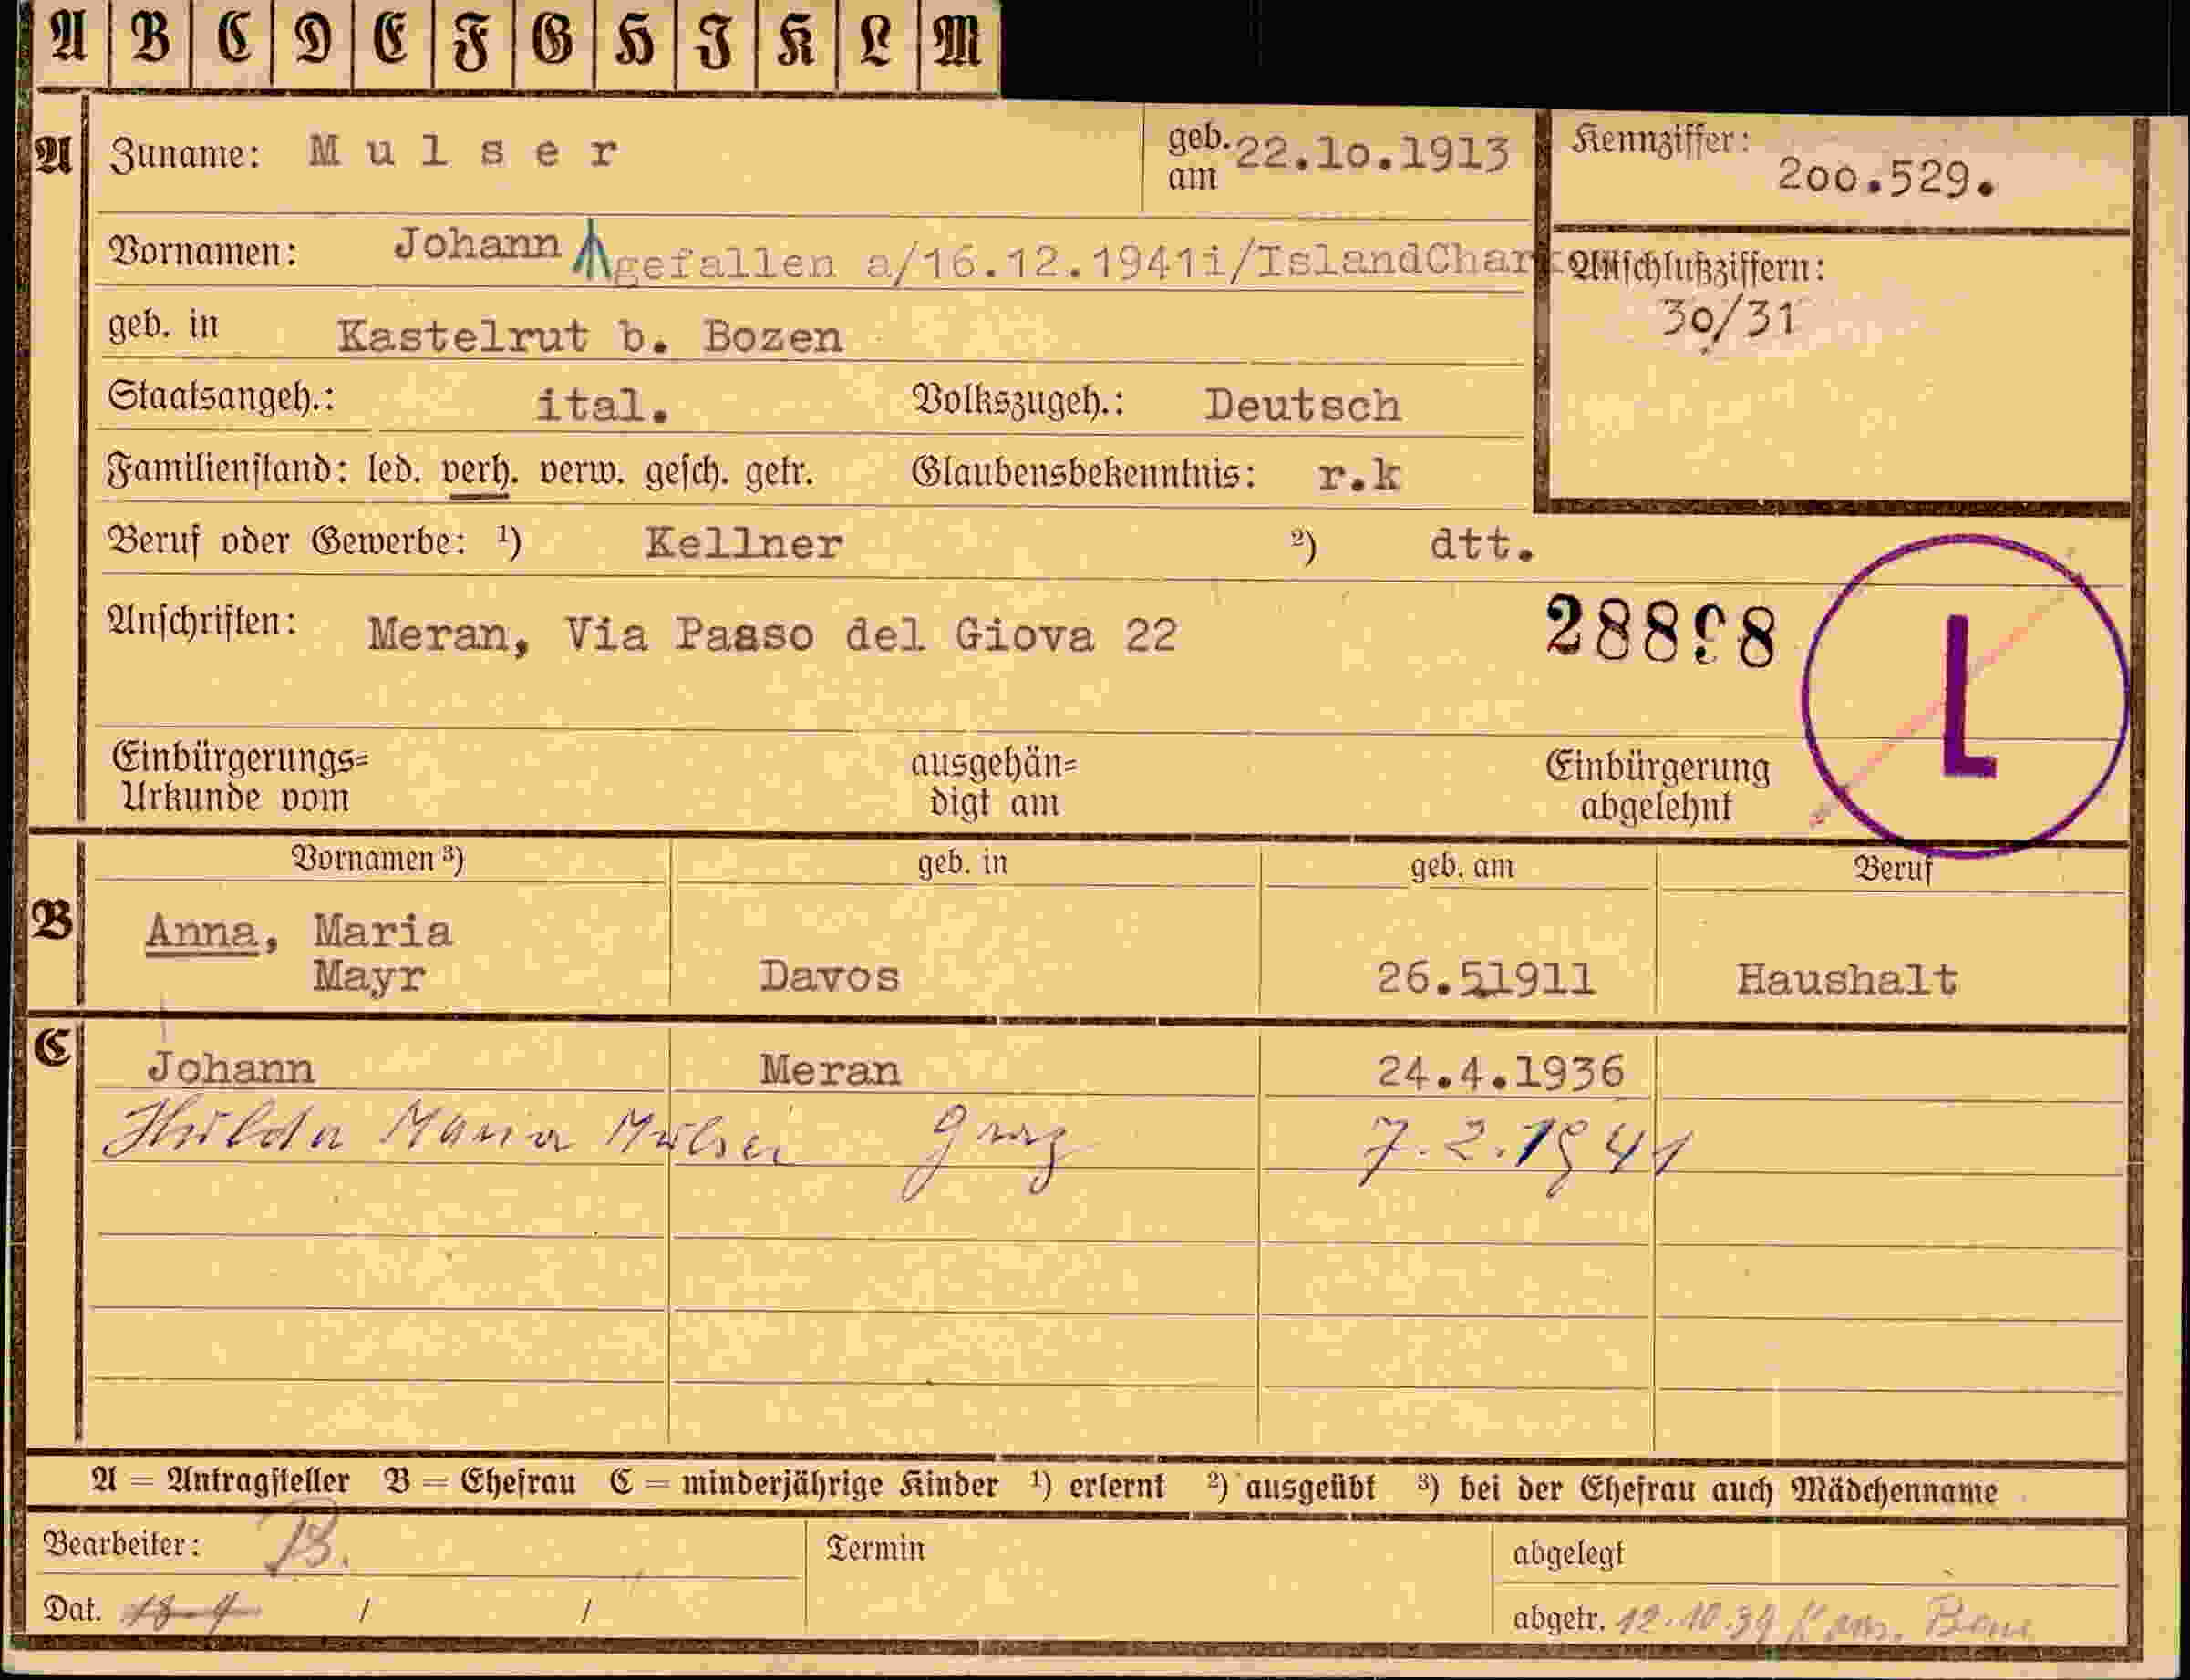 A B C D E F G H J K L M
A Zuname: Mulser geb. am 22.10.1913 Kennziffer: 200.529.
Vornamen: Johann gefallen a/16.12.1941i/IslandChar Anschlußziffern:
30/31
geb. in Kastelrut b. Bozen
Staatsangeh.: ital. Volkszugeh.: Deutsch
Familienstand: led. verh. verw. gesch. getr. Glaubensbekenntnis: r.k
Beruf oder Gewerbe: ¹) Kellner ²) dtt.
Anschriften: Meran, Via Paaso del Giova 22 28898
L
Einbürgerungs= ausgehän= Einbürgerung
Urkunde vom digt am abgelehnt
Vornamen ³) geb. in geb. am Beruf
B Anna, Maria
Mayr Davos 26.51911 Haushalt
C Johann Meran 24.4.1936
Hilda Maria Mulser Graz 7.2.1941
A = Antragsteller B = Ehefrau C = minderjährige Kinder ¹) erlernt ²) ausgeübt ³) bei der Ehefrau auch Mädchenname
Bearbeiter: B. Termin abgelegt
Dat. 18-9 / / abgetr. 12.10.39